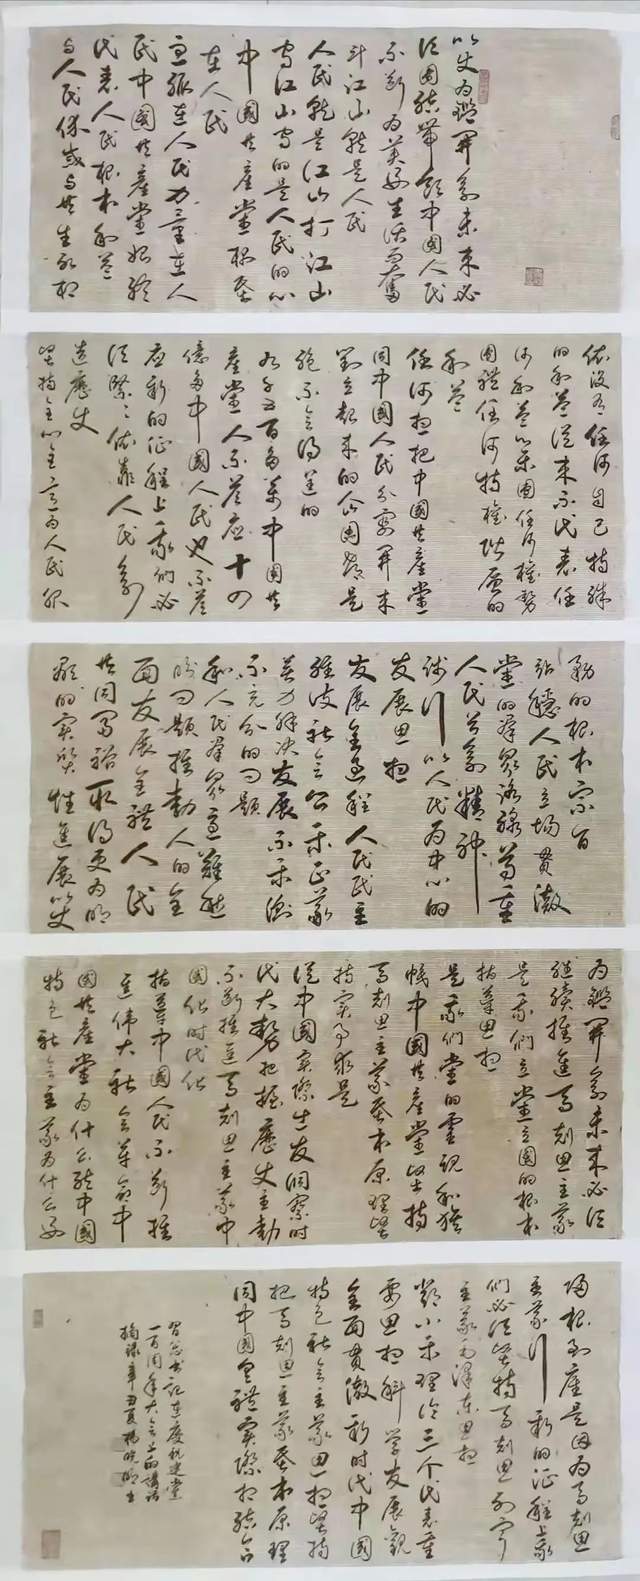 以史为鉴开创未来必
须团结带领中国人民
不断为美好生活而奋
斗江山就是人民
人民就是江山打江山
守江山守的是人民的心
中国共产党根基
在人民
血脉在人民力量在人
民中国共产党始终
代表人民根本利益
与人民休戚与共生死相
依没有任何自己特殊
的利益从来不代表任
何利益集团任何权势
团体任何特权阶层的
利益
任何想把中国共产党
同中国人民分割开来
对立起来的企图都是
绝不会得逞的
九千五百多万中国共
产党人不答应十四
亿多中国人民也不答
应新的征程上我们必
须紧紧依靠人民创
造历史
坚持全心全意为人民服
务的根本宗旨
站稳人民立场贯彻
党的群众路线尊重
人民首创精神
践行以人民为中心的
发展思想
发展全过程人民民主
维护社会公平正义
着力解决发展不平衡
不充分的问题
和人民群众急难愁
盼问题推动人的全
面发展全体人民
共同富裕取得更为明
显的实质性进展以史
为鉴开创未来必须
继续推进马克思主义
是我们立党立国的根本
指导思想
是我们党的灵魂和旗
帜中国共产党坚持
马克思主义基本原理坚
持实事求是
从中国实际出发洞察时
代大势把握历史主动
不断推进马克思主义中
国化时代化
指导中国人民不断推
进伟大社会革命中
国共产党为什么能中国
特色社会主义为什么好
归根到底是因为马克思
主义行新的征程上我
们必须坚持马克思列宁
主义毛泽东思想
邓小平理论三个代表重
要思想科学发展观
全面贯彻新时代中国
特色社会主义思想坚持
把马克思主义基本原理
同中国具体实际相结合
习总书记在庆祝建党
一百周年大会上的讲话
摘录辛丑夏杨晓明书